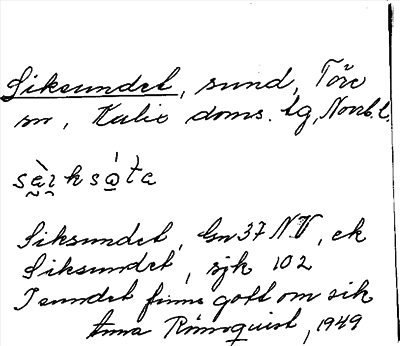 Siksundet, sund, Töre
sn, Kalix doms. tg, Norrb. l.
Siksundet, Gn 37 NV, ek
Siksundet, sjk 102
I sundet finns gott om sik
Anna Rönnquist, 1949